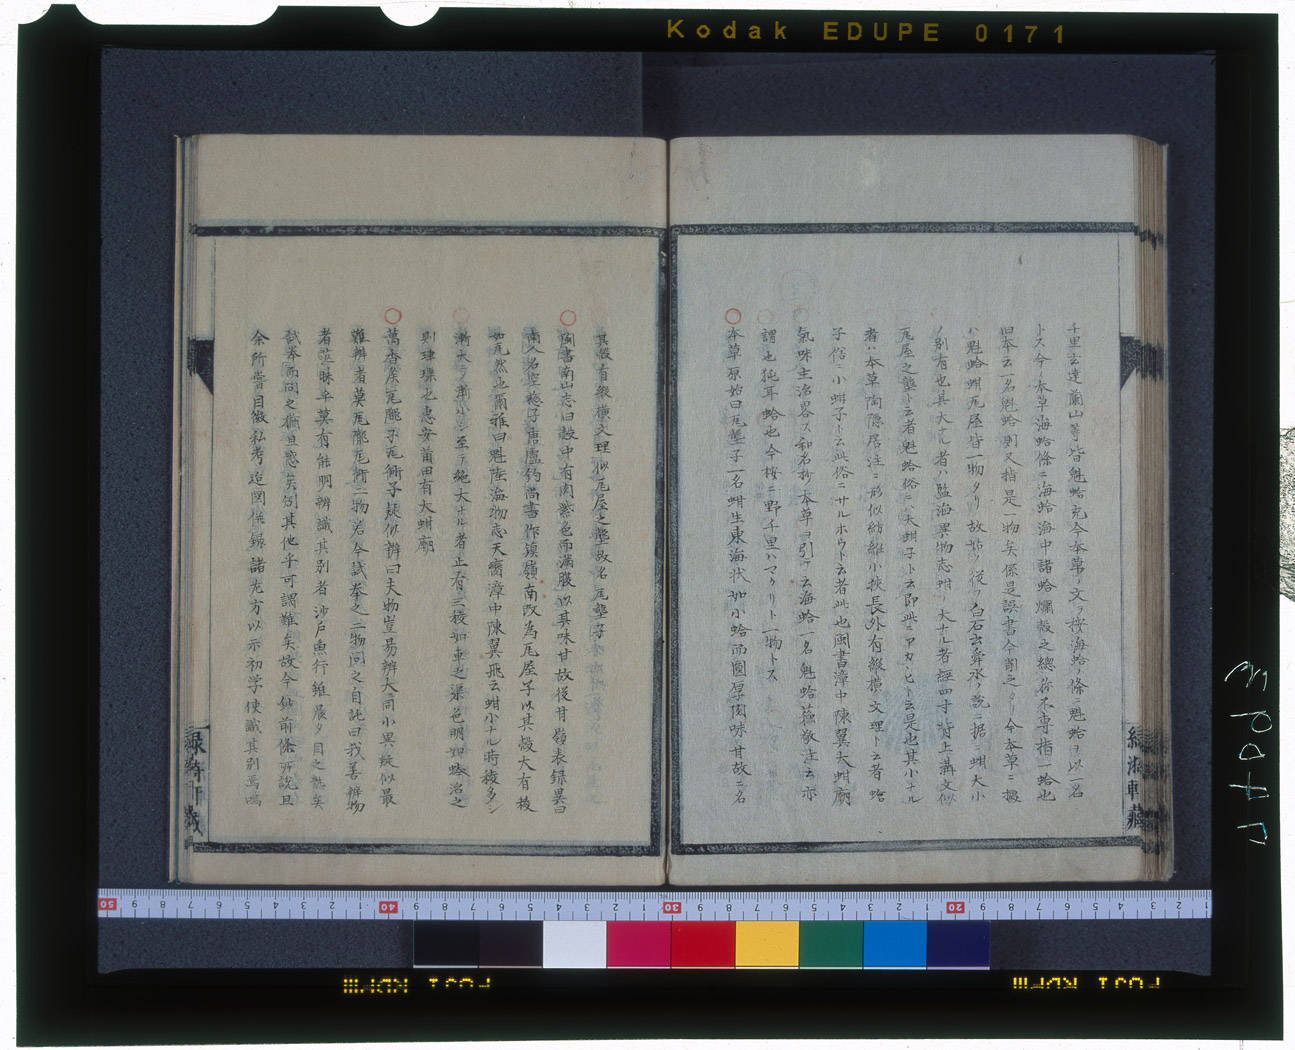 Kodak EDUPE 0171
千里玄達蘭山等皆魁蛤充今本草ノ文ヲ按海蛤ノ條ニ魁蛤ヲ以一名
トス今ノ本草海蛤條ニ海蛤海中諸蛤爛殻之總称不專指一蛤也
旧本云一名魁蛤則又指是一物矣係是誤書今削之タリ今本草ニ據
ハ魁蛤蚶瓦屋皆一物タリ故姑ク從フ白石玄舜水ノ説ニ据ニ蚶大小
ノ別有也其大ナル者ハ臨海異物志蚶ノ大ナル者經四寸背上溝文似
瓦屋之壟ト云者魁蛤俗ニ大蚶子ト云即此ニアカヾヒト云是也其小ナル
者ハ本草陶隱居注ニ形似紡軠小狹長外有縱横文理ト云者蛤
子俗ニ小蚶子ト云此俗ニサルホウト云者此也閩書漳中陳翼大蚶廟
氣味主治畧ス和名抄本草ヲ引テ云海蛤一名魁蛤蘓敬注云亦
謂也㹠耳蛤也今按ニ野千里ハマクリト一物トス
本草原始曰瓦壟子一名蚶生東海状如小蛤而圓厚肉味甘故ニ名
緑漪軒藏
其殻有縱横文理似瓦屋之壟故名瓦壟子
閩書南山志曰殻中有肉紫色而滿腹以其味甘故從甘嶺表録異曰
南人名空慈子唐盧鈞尚書作鎮嶺南改為瓦屋子以其殻大有稜
如瓦然也爾雅曰魁陸海物志天臠漳中陳翼飛云蚶小ナル時稜多シ
漸大ヲ漸小シ至テ絶大ナル者止有三稜如車之渠色明如蛤治之
則琕璖也惠安莆田有大蚶廟
萬杏矦瓦壟子瓦衖子疑似辨曰夫物豈易辨大同小異疑似最
難辨者莫瓦壟瓦衖二物若今試挙之二物問之自詑曰我善辨物
者茫昧乎莫有能明辨識其別者沙戸魚行雖晨夕目之茫矣
試挙而問之猶且惑矣例其他乎可謂難矣故今録前條所説且
余所嘗目徴私考造圖併録諸左方以示初学使識其別焉嗚
緑漪軒藏